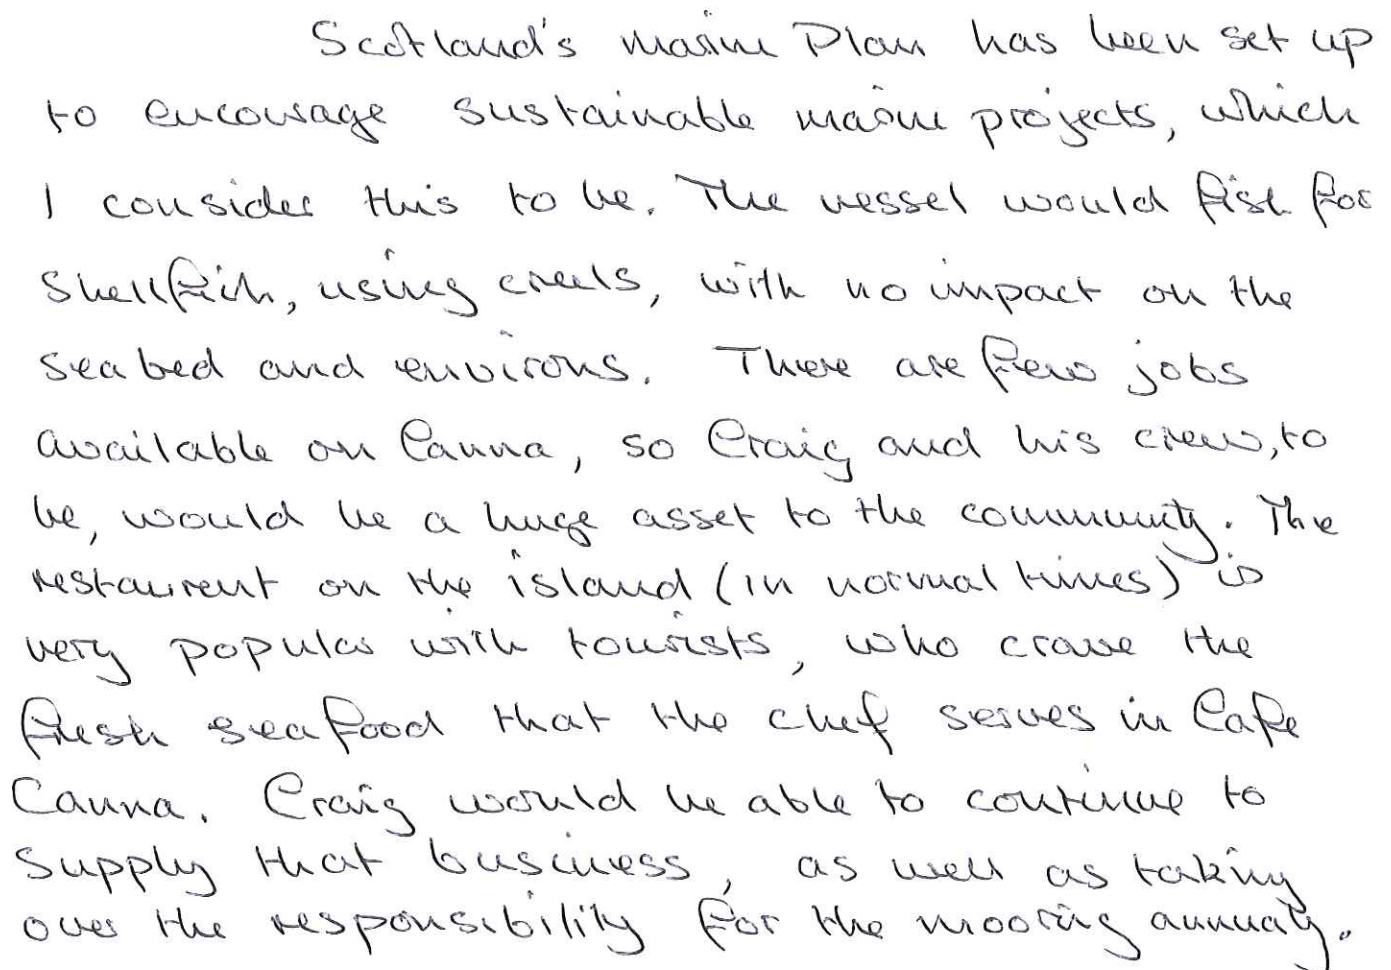 Scotland's marine Plan has been set up
to encourage sustainable marine projects, which
I consider this to be. The vessel would fish for
shellfish, using creels, with no impact on the
seabed and environs. There are few jobs
available on Canna, so Craig and his crew, to
be, would be a huge asset to the community. The
restaurent on the island (in normal times) is
very popular with tourists, who crave the
fresh seafood that the chef serves in Cafe
Canna. Craig would be able to continue to
supply that business, as well as taking
over the responsibility for the mooring annualy.